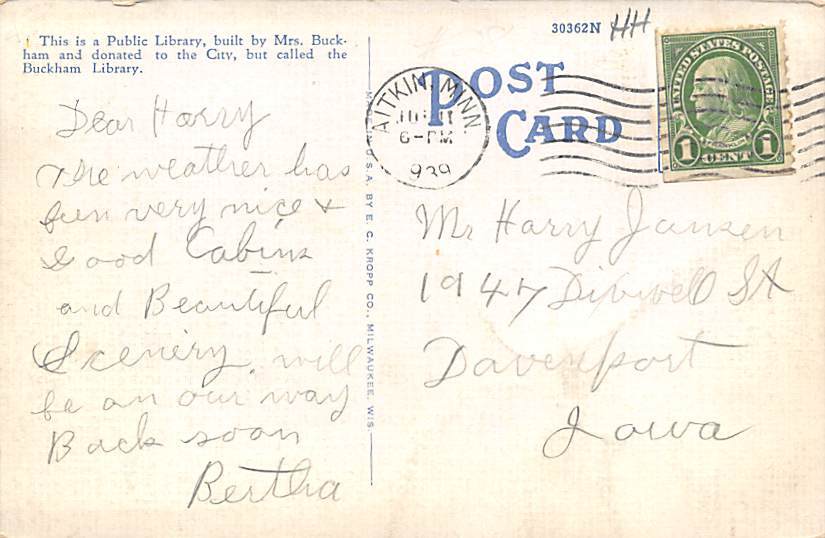 This is a Public Library, built by Mrs. Buck-
ham and donated to the City, but called the
Buckham Library.
30362N HH
POST
CARD
AITKIN, MINN.
6-PM
939
UNITED STATES POSTAGE
1 CENT 1
MADE IN U.S.A. BY E. C. KROPP CO., MILWAUKEE, WIS.
Dear Harry
The weather has
been very nice &
Good Cabins
and Beautiful
Scenery. will
be on our way
Back soon
Bertha
Mr Harry Jansen
1947 St
Davenport
Iowa